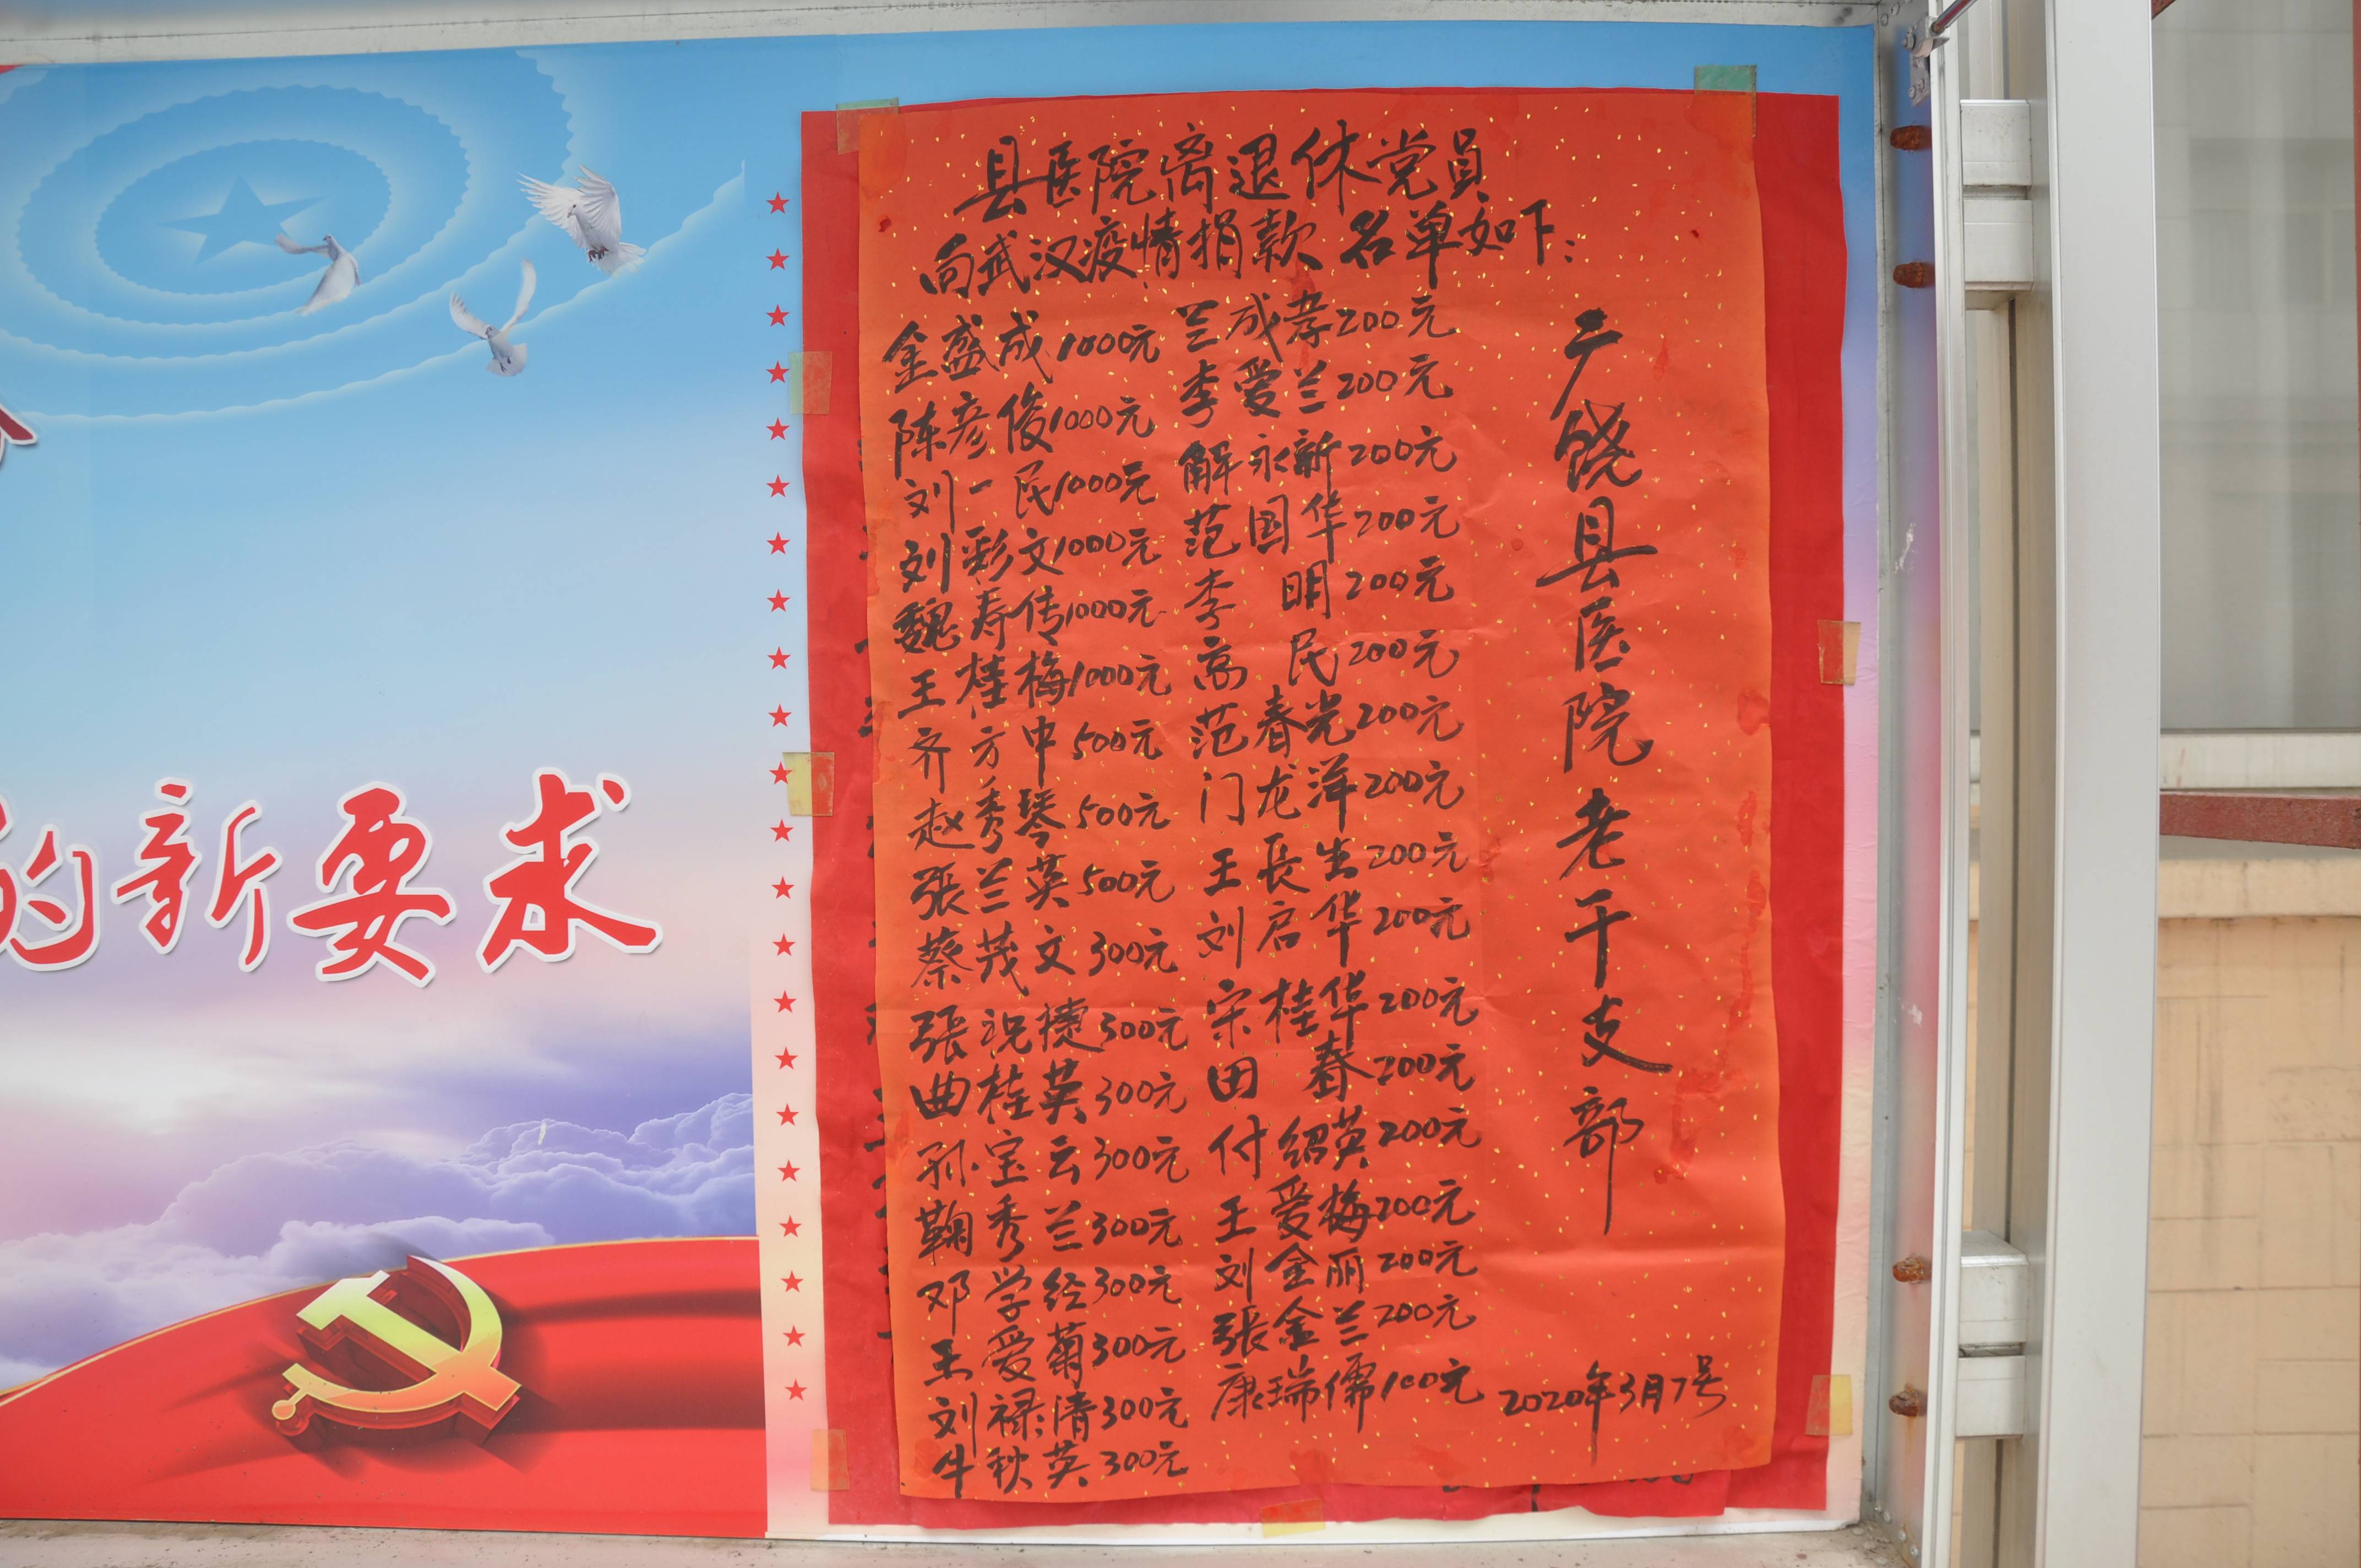 的新要求
县医院离退休党员
向武汉疫情捐款名单如下:
金盛成1000元
陈彦俊1000元
刘一民1000元
刘彩文1000元
魏寿传1000元
王桂梅1000元
齐方中500元
赵秀琴500元
張兰英500元
蔡茂文300元
張祝捷300元
曲桂英300元
孙宝云300元
鞠秀兰300元
邓学经300元
王爱菊300元
刘禄清300元
牛秋英300元
兰成孝200元
李爱兰200元
解永新200元
范国华200元
李明200元
高民200元
范春光200元
门龙洋200元
王長生200元
刘启华200元
宋桂华200元
田春200元
付绍英200元
王爱梅200元
刘金丽200元
張金兰200元
康瑞儒100元
广饶县医院老干支部
2020年3月7号